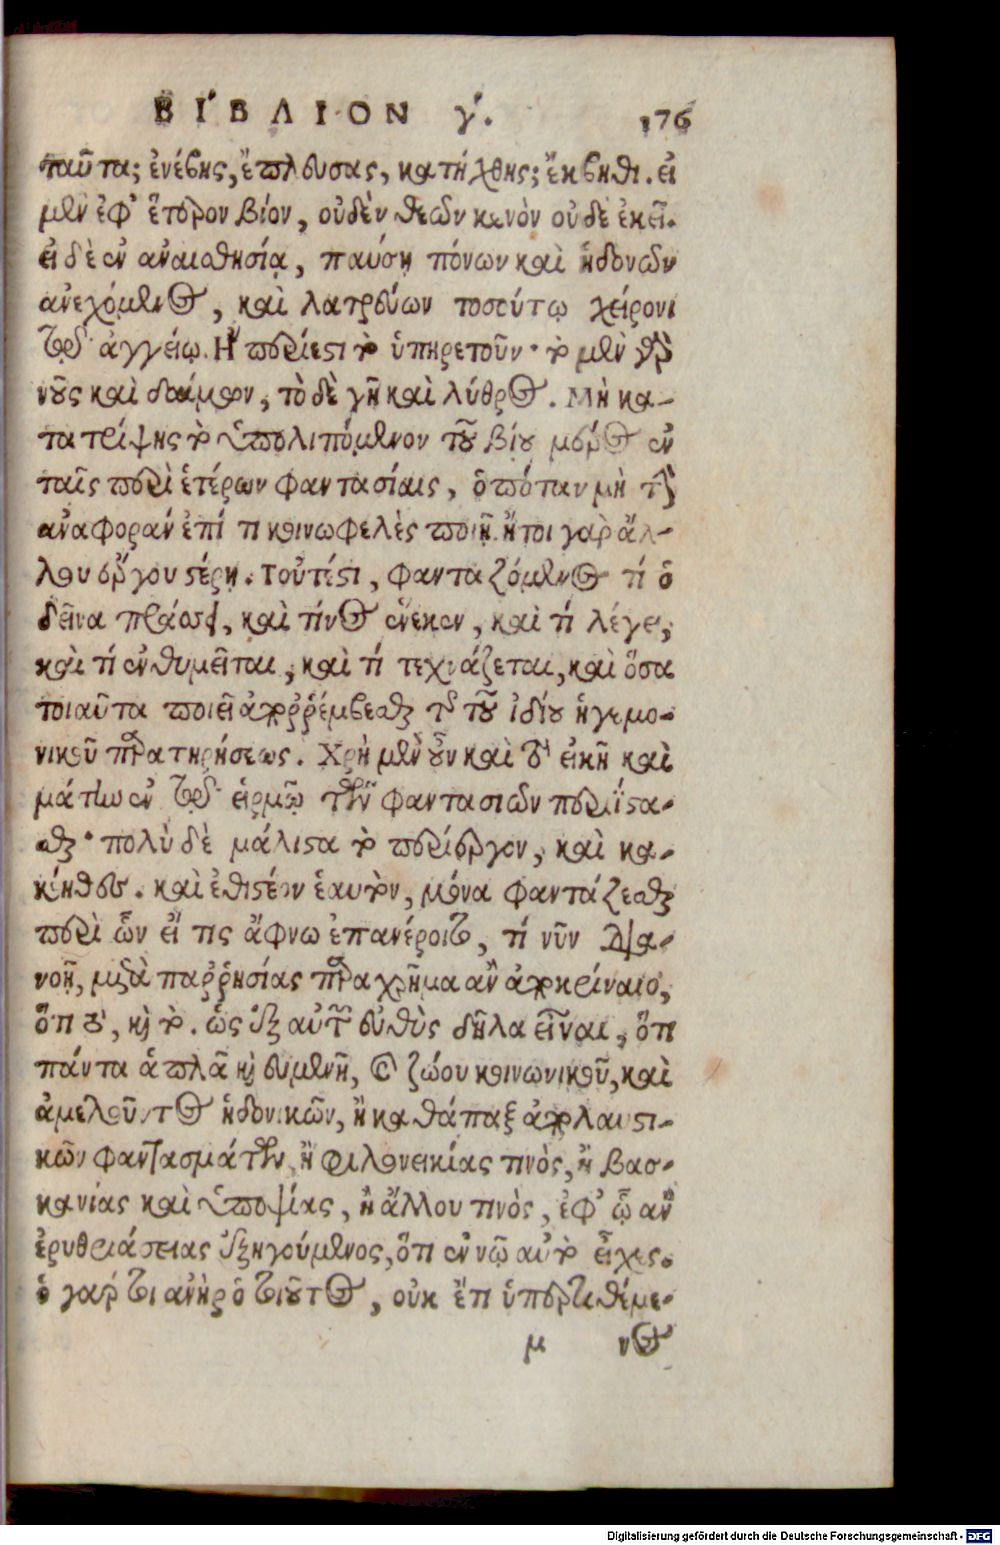 ΒΙΒΛΙΟΝ γ΄. 176
ταῦτα; ἐνέβης, ἔπλευσας, κατήχθης; ἔκβηθι. εἰ
μὲν ἐφ᾽ ἕτερον βίον, οὐδὲν θεῶν κενὸν οὐδὲ ἐκεῖ.
εἰ δὲ ἐν ἀναισθησίᾳ, παύσῃ πόνων καὶ ἡδονῶν
ἀνεχόμενος, καὶ λατρεύων τοσούτῳ χείρονι
τῷ ἀγγείῳ. Ἢ περίεστι τὸ ὑπηρετοῦν· τὸ μὲν γὰρ
νοῦς καὶ δαίμων, τὸ δὲ γῆ καὶ λύθρος. Μὴ κα-
τατρίψης τὸ ὑπολιπόμενον τοῦ βίου μέρος ἐν
ταῖς περὶ ἑτέρων φαντασίαις, ὁπόταν μὴ τὴν
ἀναφορὰν ἐπί τι κοινωφελὲς ποιῇ. ἤτοι γὰρ ἄλ-
λου ἔργου στέρῃ. Τουτέστι, φανταζόμενος τί ὁ
δεῖνα πράσσει, καὶ τίνος ἕνεκεν, καὶ τί λέγει,
καὶ τί ἐνθυμεῖται, καὶ τί τεχνάζεται, καὶ ὅσα
τοιαῦτα ποιεῖ ἀπορρέμβεσθαι τῆς τοῦ ἰδίου ἡγεμο-
νικοῦ παρατηρήσεως. Χρὴ μὲν οὖν καὶ τὸ εἰκῆ καὶ
μάτην ἐν τῷ εἱρμῷ τῶν φαντασιῶν περιΐστα-
σθαι· πολὺ δὲ μάλιστα τὸ περίεργον, καὶ κα-
κόηθες. καὶ ἐθιστέον ἑαυτὸν, μόνα φαντάζεσθαι
περὶ ὧν εἴ τις ἄφνω ἐπανέροιτο, τί νῦν διὰ-
νοῇ, μετὰ παῤῥησίας παραχρῆμα ἂν ἀποκρίναιο,
ὅτι τὸ, καὶ τὸ. ὡς ἐξ αὐτῶν εὐθὺς δῆλα εἶναι, ὅτι
πάντα ἁπλᾶ καὶ εὐμενῆ, καὶ ζώου κοινωνικοῦ, καὶ
ἀμελοῦντος ἡδονικῶν, ἢ καθάπαξ ἀπολαυστι-
κῶν φαντασμάτων, ἢ φιλονεικίας τινὸς, ἢ βασ-
κανίας καὶ ὑποψίας, ἢ ἄλλου τινὸς, ἐφ᾽ ᾧ ἂν
ἐρυθριάσειας ἐξηγούμενος, ὅτι ἐν νῷ αὐτὸ εἶχες.
ὁ γάρ τοι ἀνὴρ ὁ τοιοῦτος, οὐκ ἔτι ὑπερτιθέμε-
μ νος
Digitalisierung gefördert durch die Deutsche Forschungsgemeinschaft - DFG